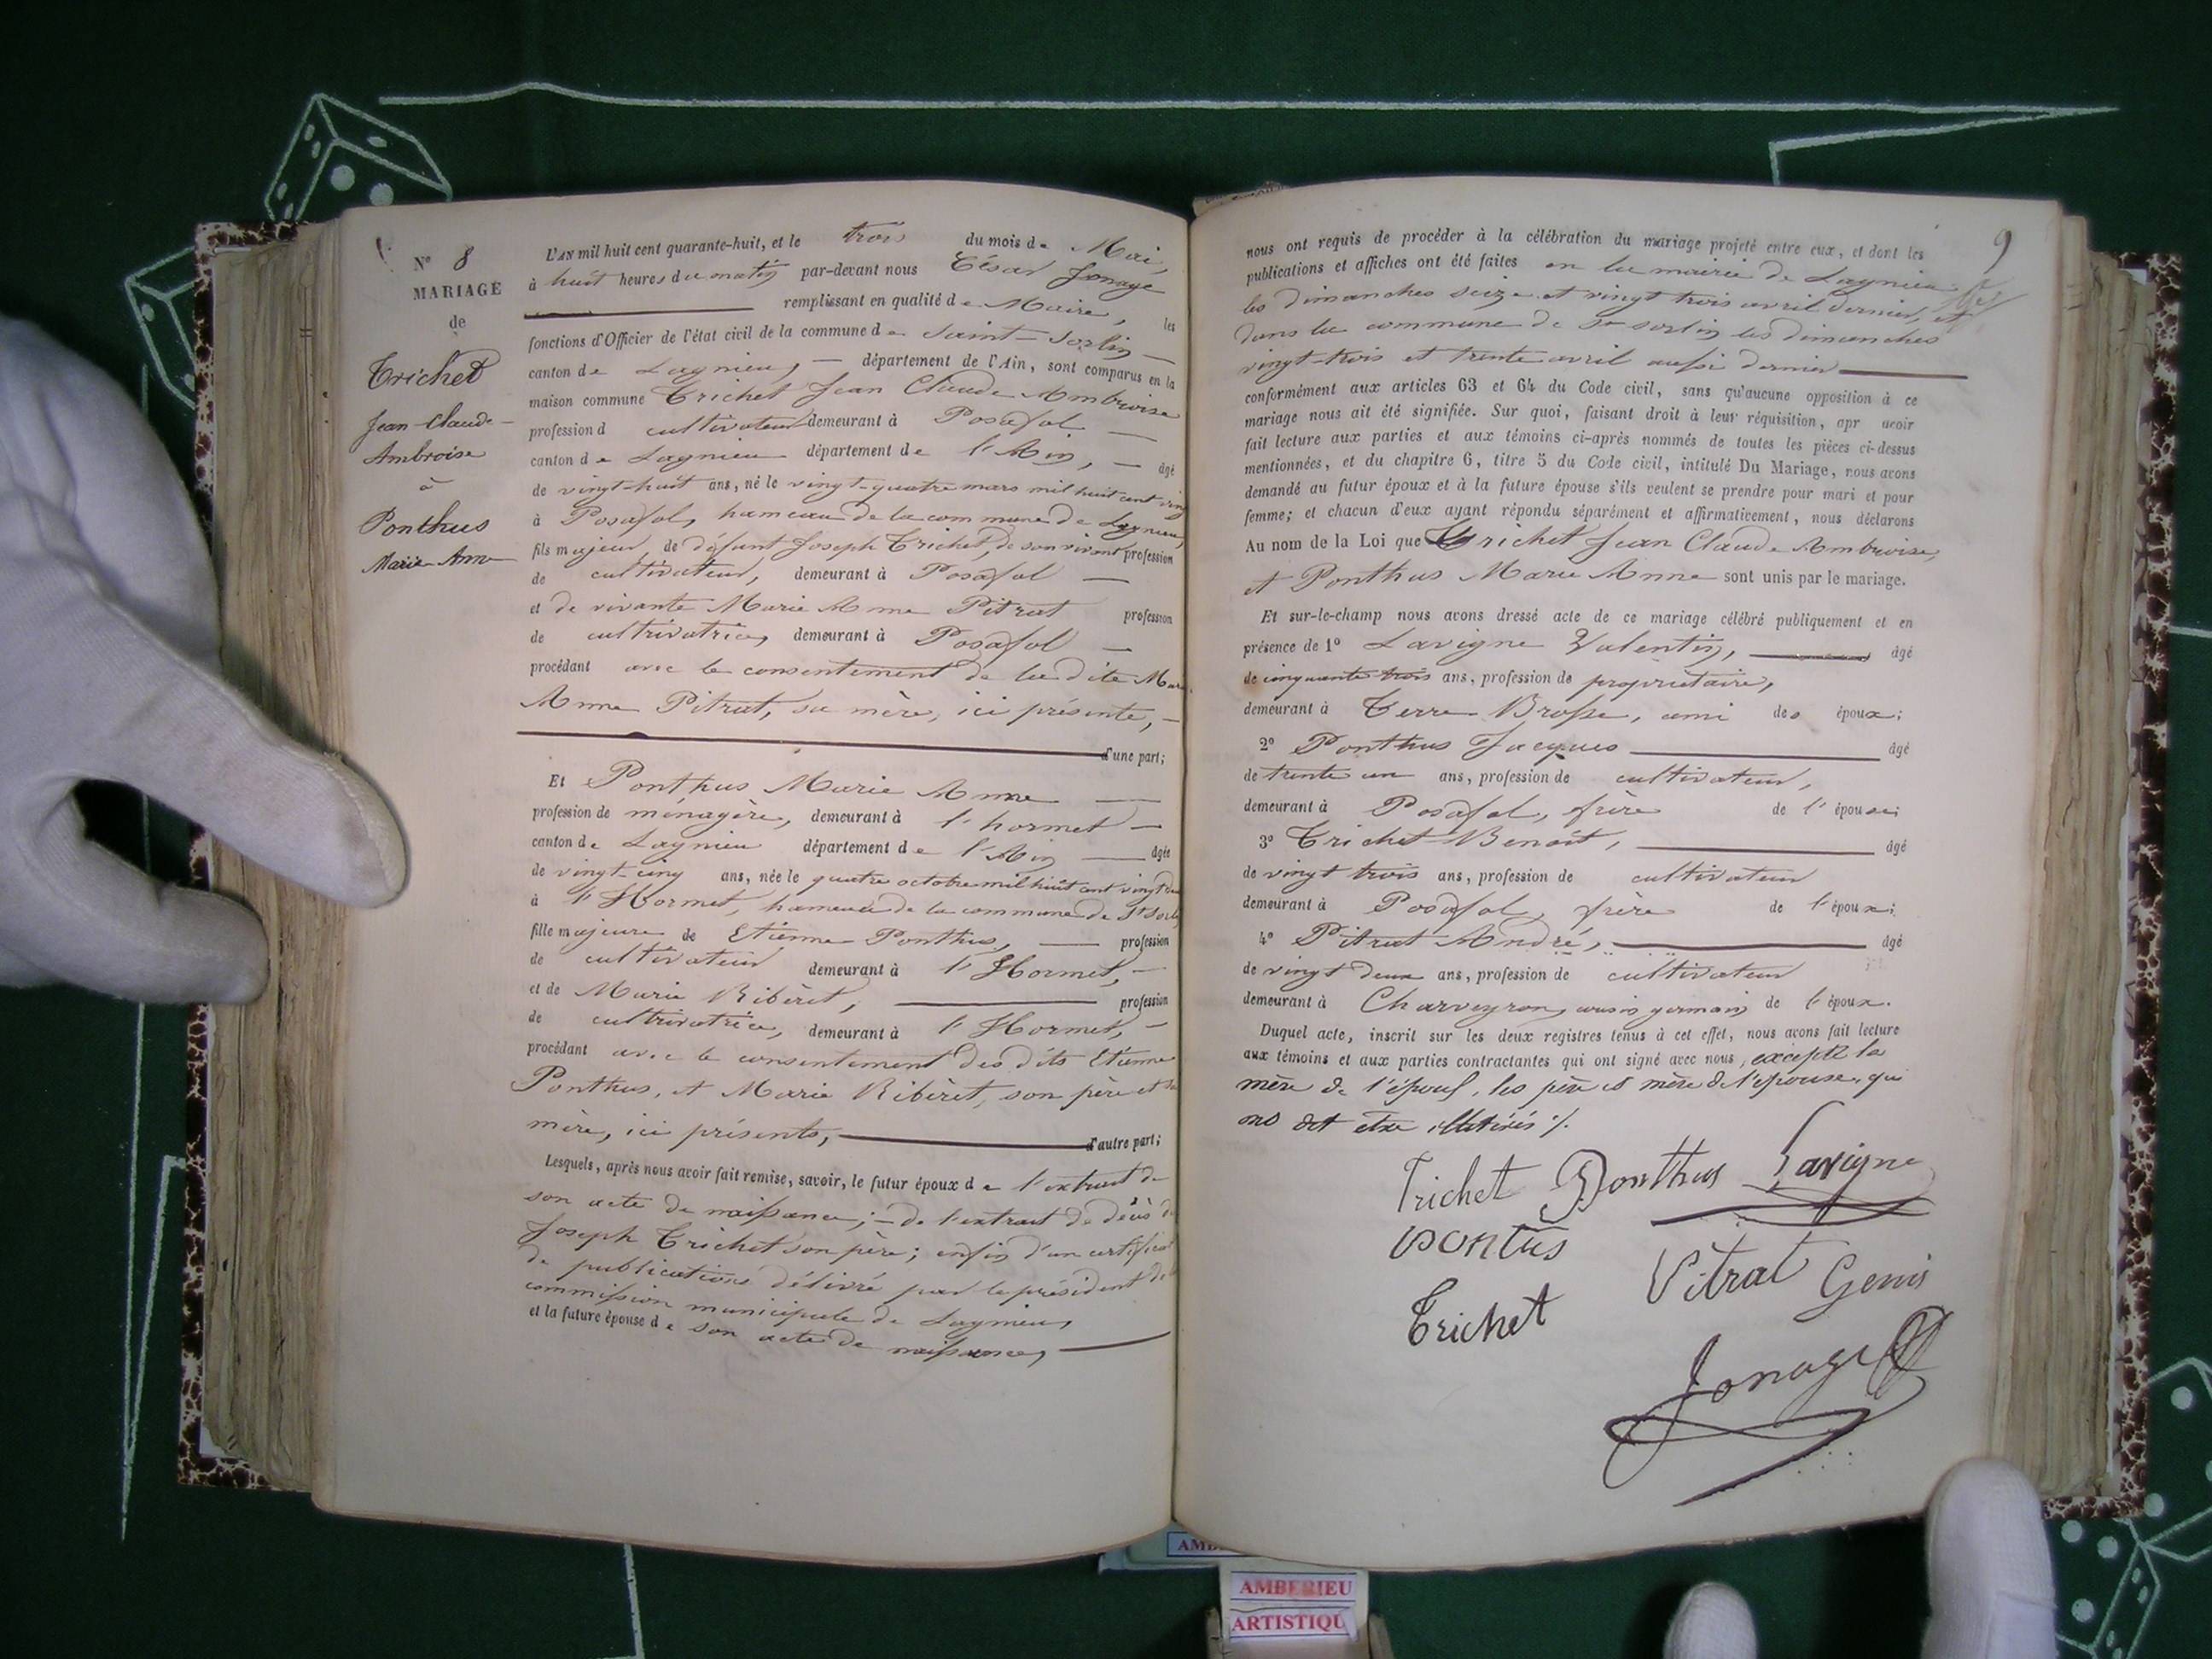 N° 8
MARIAGE
de
Trichet
Jean-Claude-
Ambroise
à
Ponthus
Marie-Anne
L'AN mil huit cent quarante-huit, et le trois du mois de Mai,
à huit heures du matin par-devant nous César Jonage
remplissant en qualité de Maire, les
fonctions d'Officier de l'état civil de la commune de Saint-Sorlin
canton de Lagnieu, département de l'Ain, sont comparus en la
maison commune Trichet Jean Claude Ambroise
profession d cultivateur demeurant à Posafol
canton de Lagnieu département de l'Ain, âgé
de vingt-huit ans, né le vingt-quatre mars mil huit cent ving
à Posafol, hameau de la commune de Lagnieu,
fils majeur de défunt Joseph Trichet, de son vivant profession
de cultivateur, demeurant à Posafol
et de vivante Marie Anne Pitrat profession
de cultivatrice, demeurant à Posafol
procédant avec le consentement de la dite Marie
Anne Pitrat, sa mère, ici présente,
d'une part;
Et Ponthus Marie Anne
profession de ménagère, demeurant à l'hormet
canton de Lagnieu département de l'Ain âgée
de vingt-cinq ans, née le quatre octobre mil huit cent vingt deux
à l'Hormet, hameau de la commune de St Sorlin
fille majeure de Etienne Ponthus, profession
de cultivateur demeurant à l'Hormet,
et de Marie Ribèret, profession
de cultivatrice, demeurant à l'Hormet,
procédant avec le consentement des dits Etienne
Ponthus, et Marie Ribèret, son père et sa
mère, ici présents, d'autre part;
Lesquels, après nous avoir fait remise, savoir, le futur époux de l'extrait de
son acte de naissance; - de l'extrait de décès de
Joseph Trichet son père; enfin d'un certificat
de publications délivré par le président de la
commission municipale de Lagnieu,
et la future épouse de son acte de naissance,
9
nous ont requis de procéder à la célébration du mariage projeté entre eux, et dont les
publications et affiches ont été faites en la mairie de Lagnieu
les dimanches seize et vingt trois avril dernier, et
dans la commune de St Sorlin les dimanches
vingt-trois et trente avril aussi dernier
conformément aux articles 63 et 64 du Code civil, sans qu'aucune opposition à ce
mariage nous ait été signifiée. Sur quoi, faisant droit à leur réquisition, apr avoir
fait lecture aux parties et aux témoins ci-après nommés de toutes les pièces ci-dessus
mentionnées, et du chapitre 6, titre 5 du Code civil, intitulé Du Mariage, nous avons
demandé au futur époux et à la future épouse s'ils veulent se prendre pour mari et pour
femme; et chacun d'eux ayant répondu séparément et affirmativement, nous déclarons
Au nom de la Loi que Trichet Jean Claude Ambroise,
et Ponthus Marie Anne sont unis par le mariage.
Et sur-le-champ nous avons dressé acte de ce mariage célébré publiquement et en
présence de 1° Lavigne Valentin, âgé
de cinquante trois ans, profession de propriétaire,
demeurant à Terre Brosse, ami des époux;
2° Ponthus Jacques âgé
de trente un ans, profession de cultivateur,
demeurant à Posafol, frère de l'épouse;
3° Trichet Benoît, âgé
de vingt trois ans, profession de cultivateur
demeurant à Posafol, frère de l'époux;
4° Pitrat André, âgé
de vingt deux ans, profession de cultivateur
demeurant à Charveyron, cousin germain de l'époux.
Duquel acte, inscrit sur les deux registres tenus à cet effet, nous avons fait lecture
aux témoins et aux parties contractantes qui ont signé avec nous, excepté la
mère de l'époux, les père et mère de l'épouse, qui
ont dit etre illétérés ./.
Trichet Ponthus Lavigne
pontus
Pitrat Genis
Trichet
Jonage
AMBERIEU
ARTISTIQU